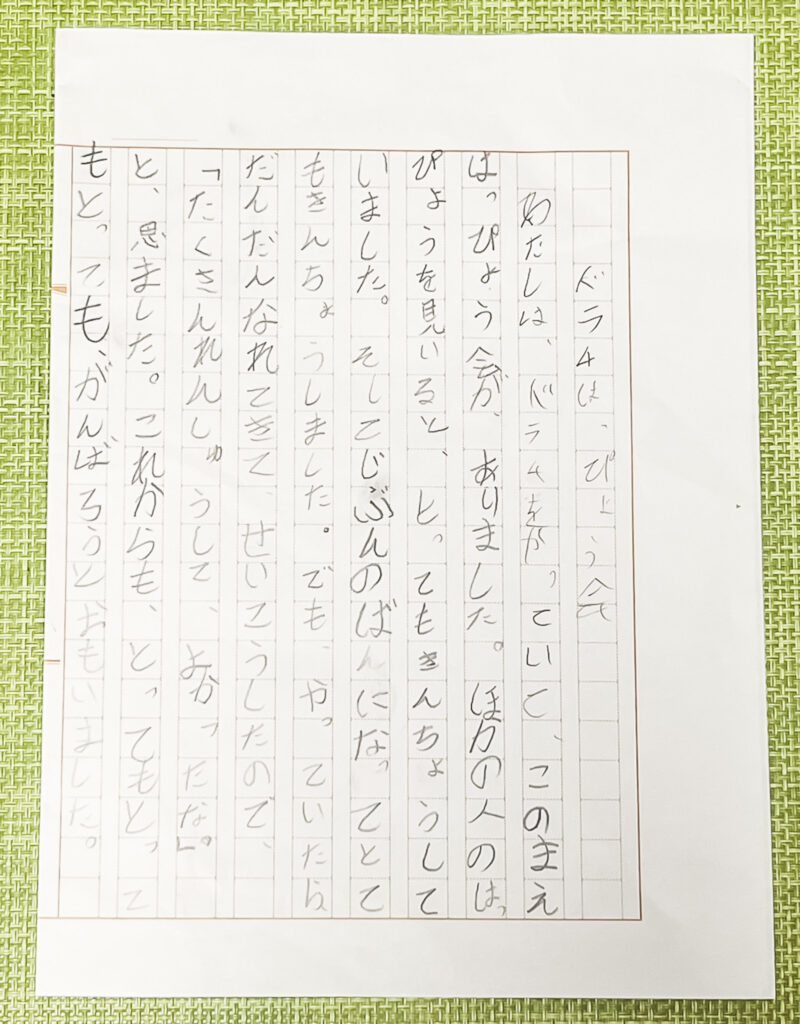 ドラムは、ぴょう会
わたしは、ドラムをがっていて、このまえ
はっぴょう会が、ありました。ほかの人のはっ
ぴょうを見いると、とってもきんちょうして
いました。そしてじぶんのばんになってとて
もきんちょうしました。でも、やっていたら
だんだんなれてきて、せいこうしたので、
「たくさんれんしゅうして、よかったな」。
と、思ました。これからも、とってもとって
もとっても、がんばろうとおもいました。